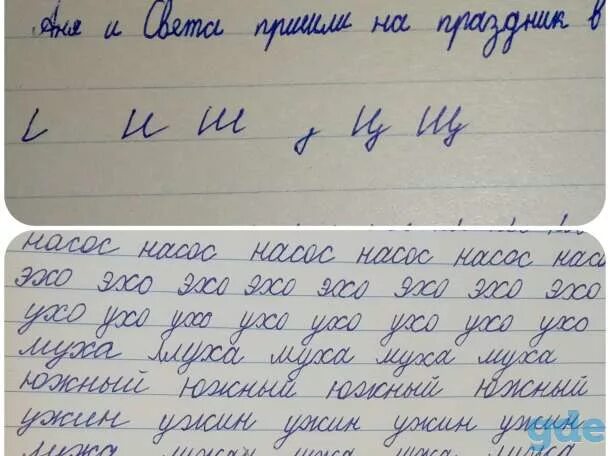 Аня и Света пришли на праздник в
и ш ц щ
насос насос насос насос насос
эхо эхо эхо эхо эхо эхо эхо эхо
ухо ухо ухо ухо ухо ухо ухо ухо
муха муха муха муха муха
южный южный южный южный
ужин ужин ужин ужин ужин
gde